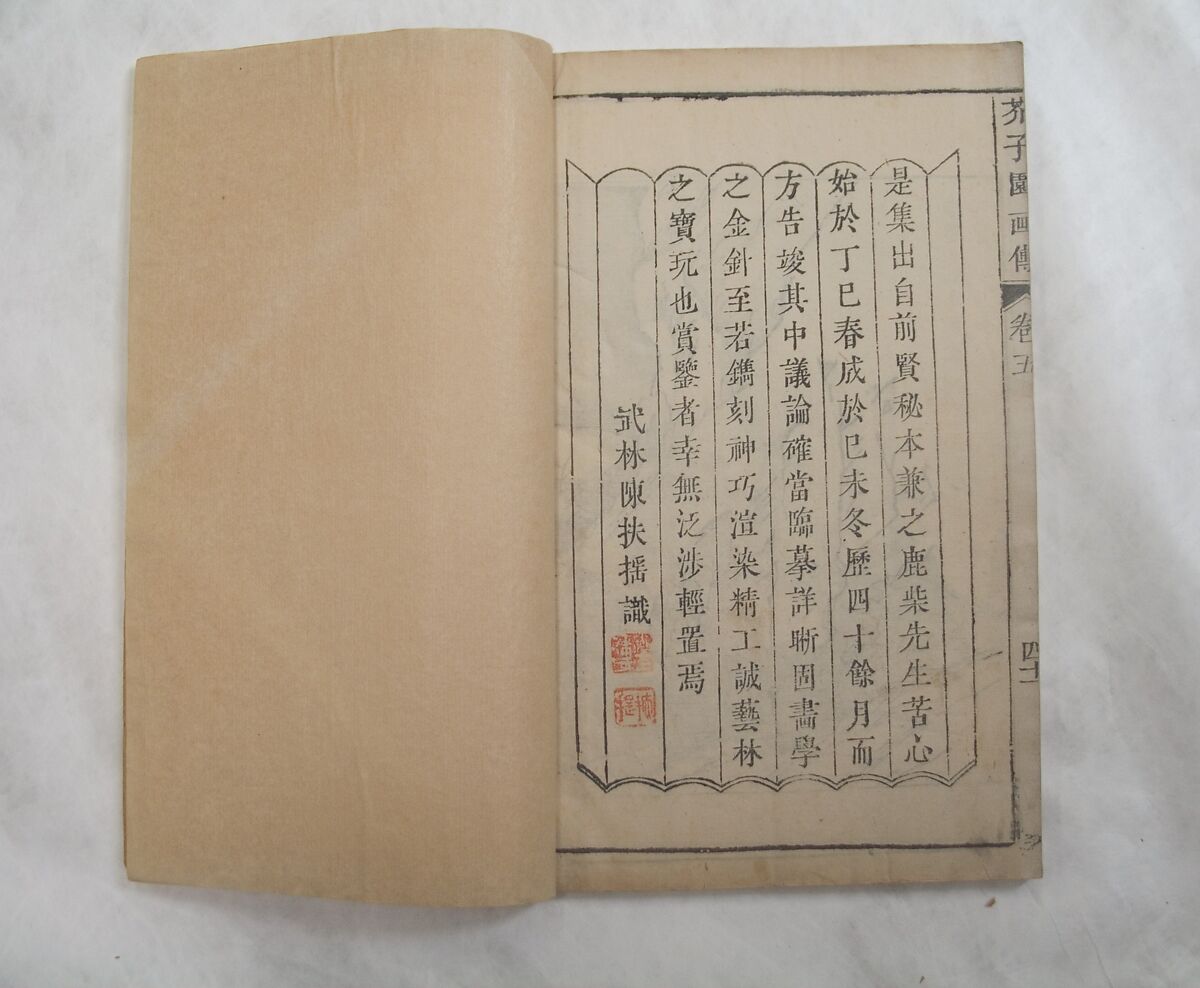 芥子園畫傳
卷五
四十
是集出自前賢秘本兼之鹿柴先生苦心
始於丁巳春成於己未冬歷四十餘月而
方告竣其中議論確當臨摹詳晰固畵學
之金針至若鐫刻神巧渲染精工誠藝林
之寶玩也賞鑒者幸無泛涉輕置焉
武林陳扶摇識